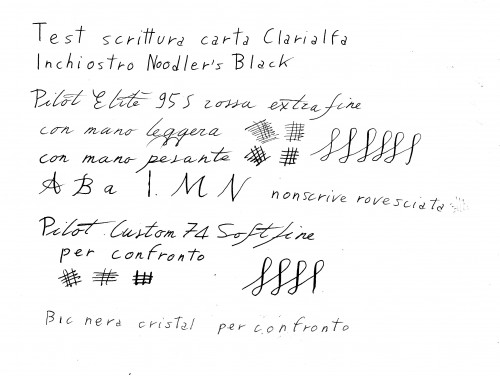 Test scrittura carta Clarialfa
Inchiostro Noodler's Black
Pilot Elite 95S rossa extra fine
con mano leggera
con mano pesante
A B a I. M N nonscrive rovesciata
Pilot Custom 74 Soft fine
per confronto
Bic nera cristal per confronto